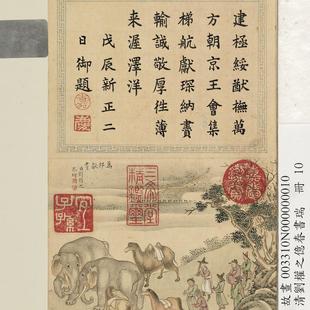 建極綏猷撫萬
方朝京王會集
梯航獻琛納賮
輸誠敬厚往薄
來渥澤洋
戊辰新正二
日御題
三希堂精鑑璽
宜子孫
故畫 003310N000000010
清劉權之億春書瑞 冊 10